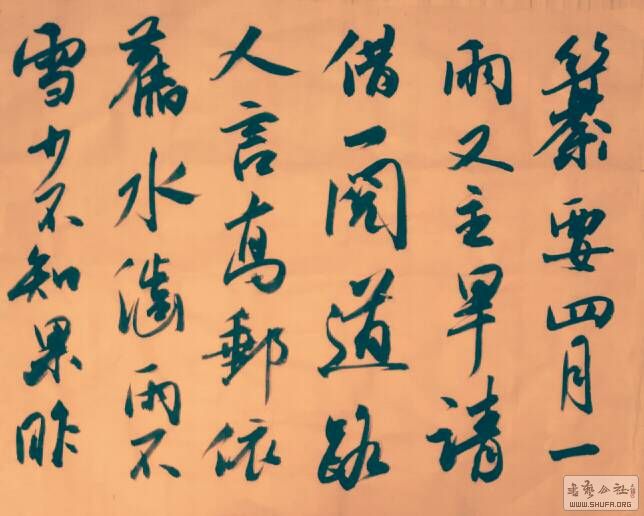 纂要四月一
雨又主旱請
借一閱道路
人言高郵依
舊水澁雨不
雪少不知果
书艺公社
WWW.SHUFA.ORG